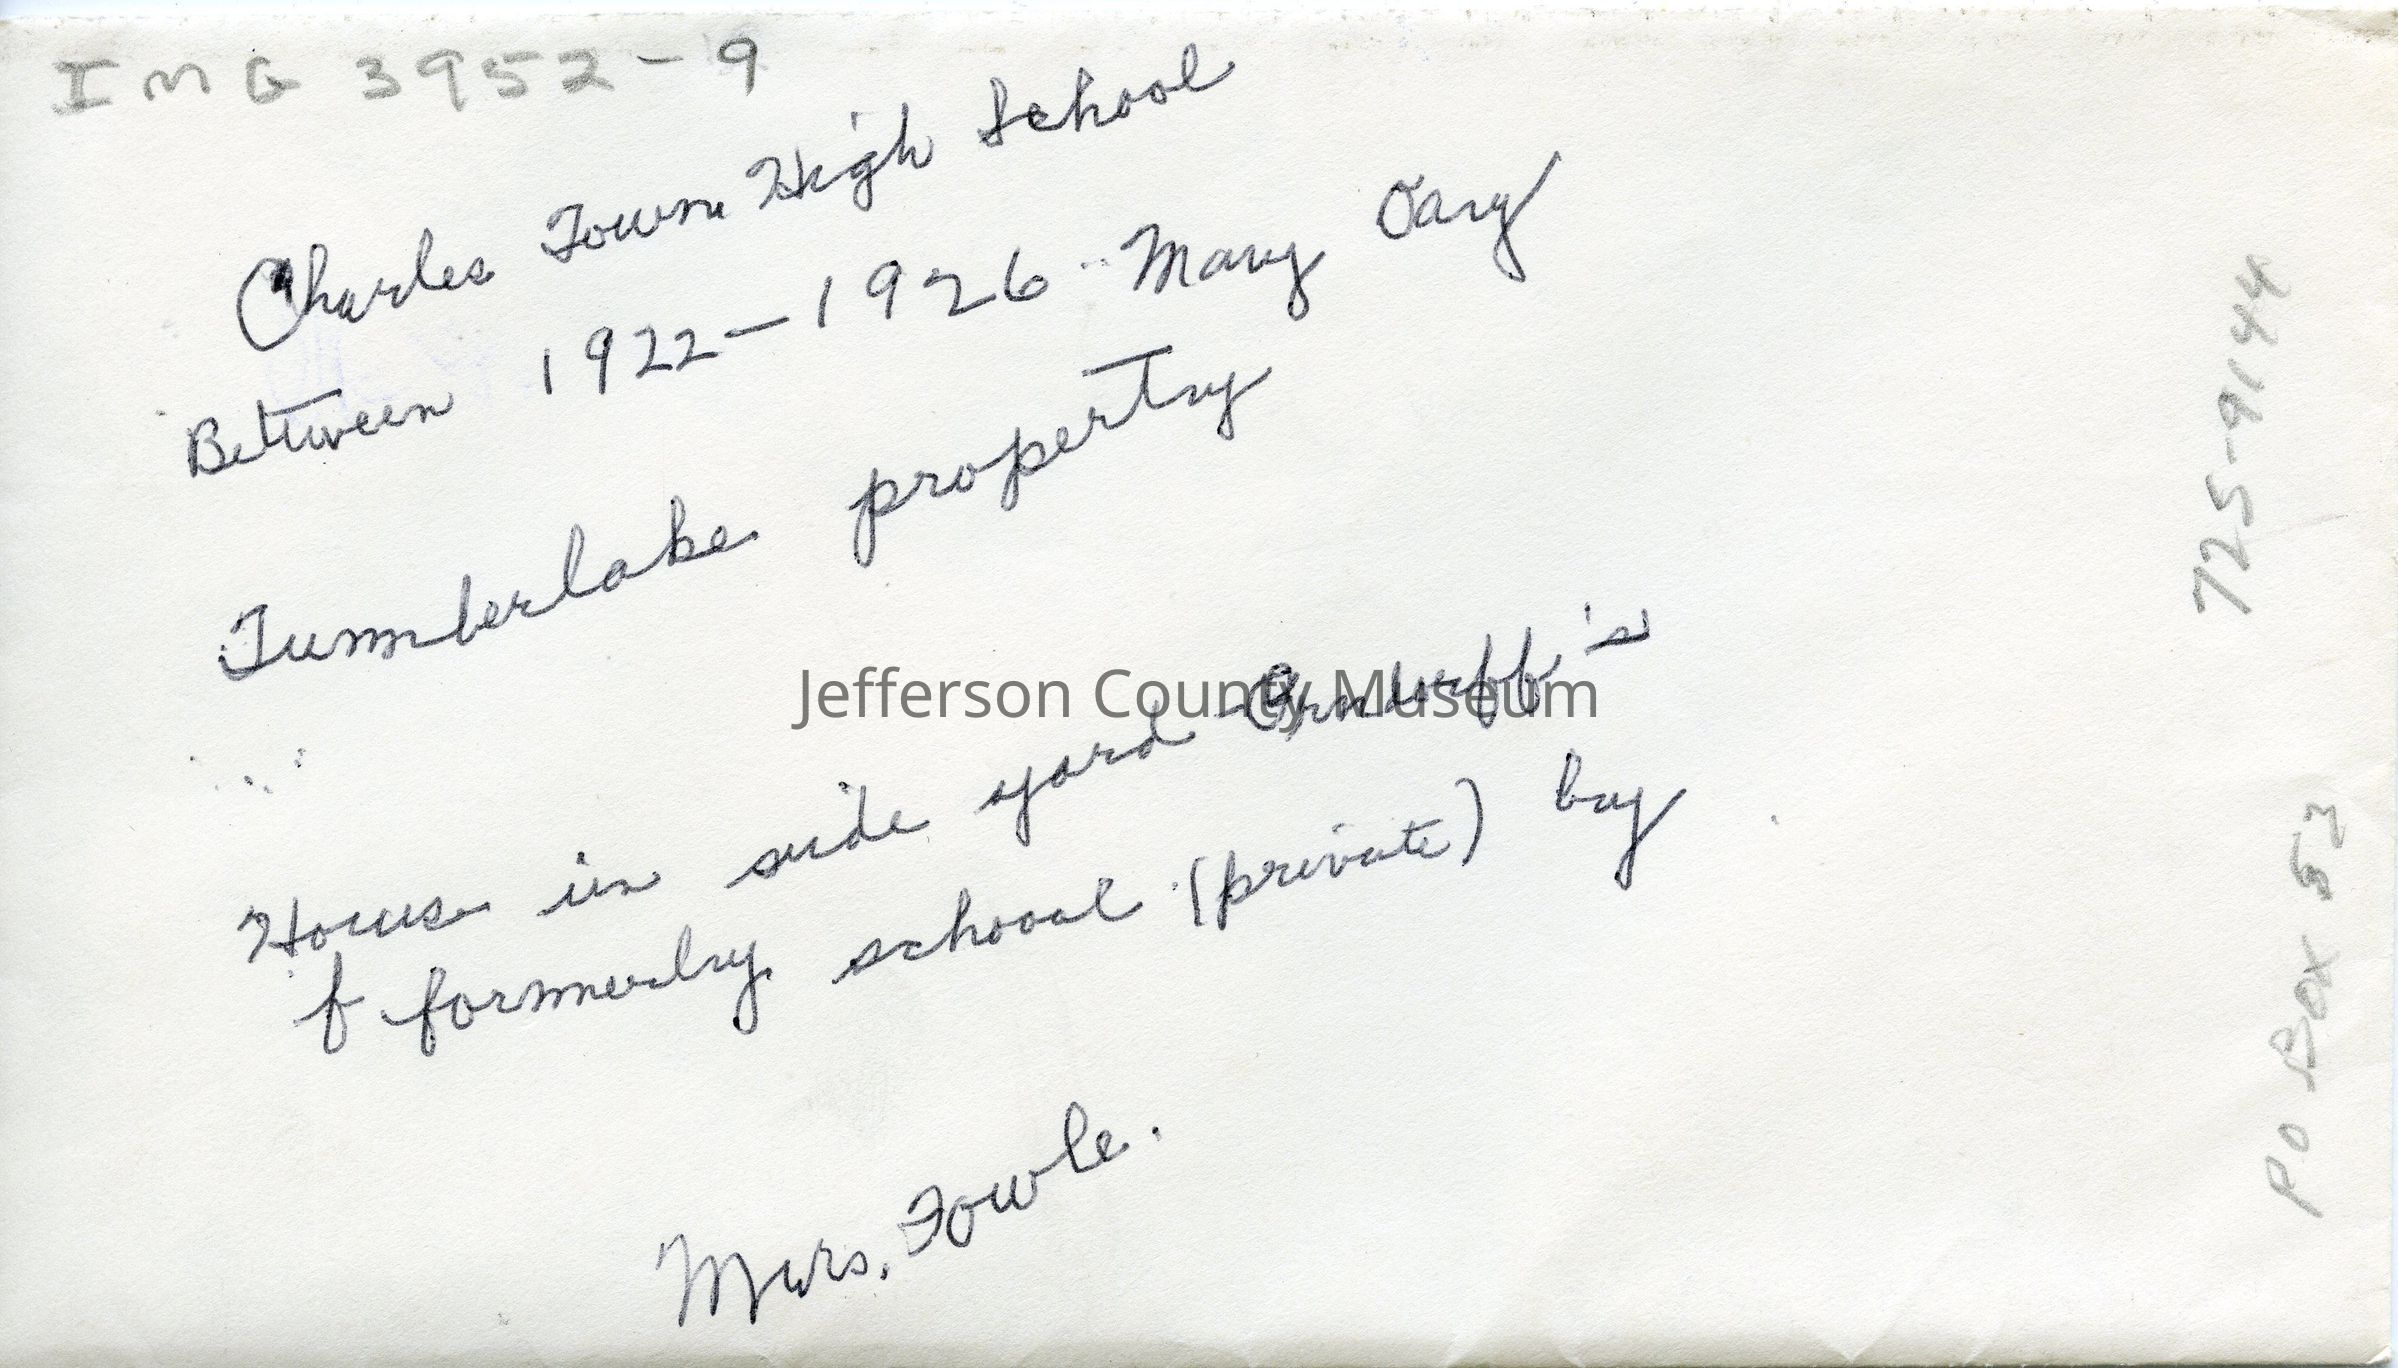 IMG 3952-9
Charles Town High School
Between 1922-1926 Mary
Timberlake property
House in side yard - Orndorff's
f formerly school (private) by
Mrs. Fowle.
725-9144
PO Box 52
Jefferson County Museum